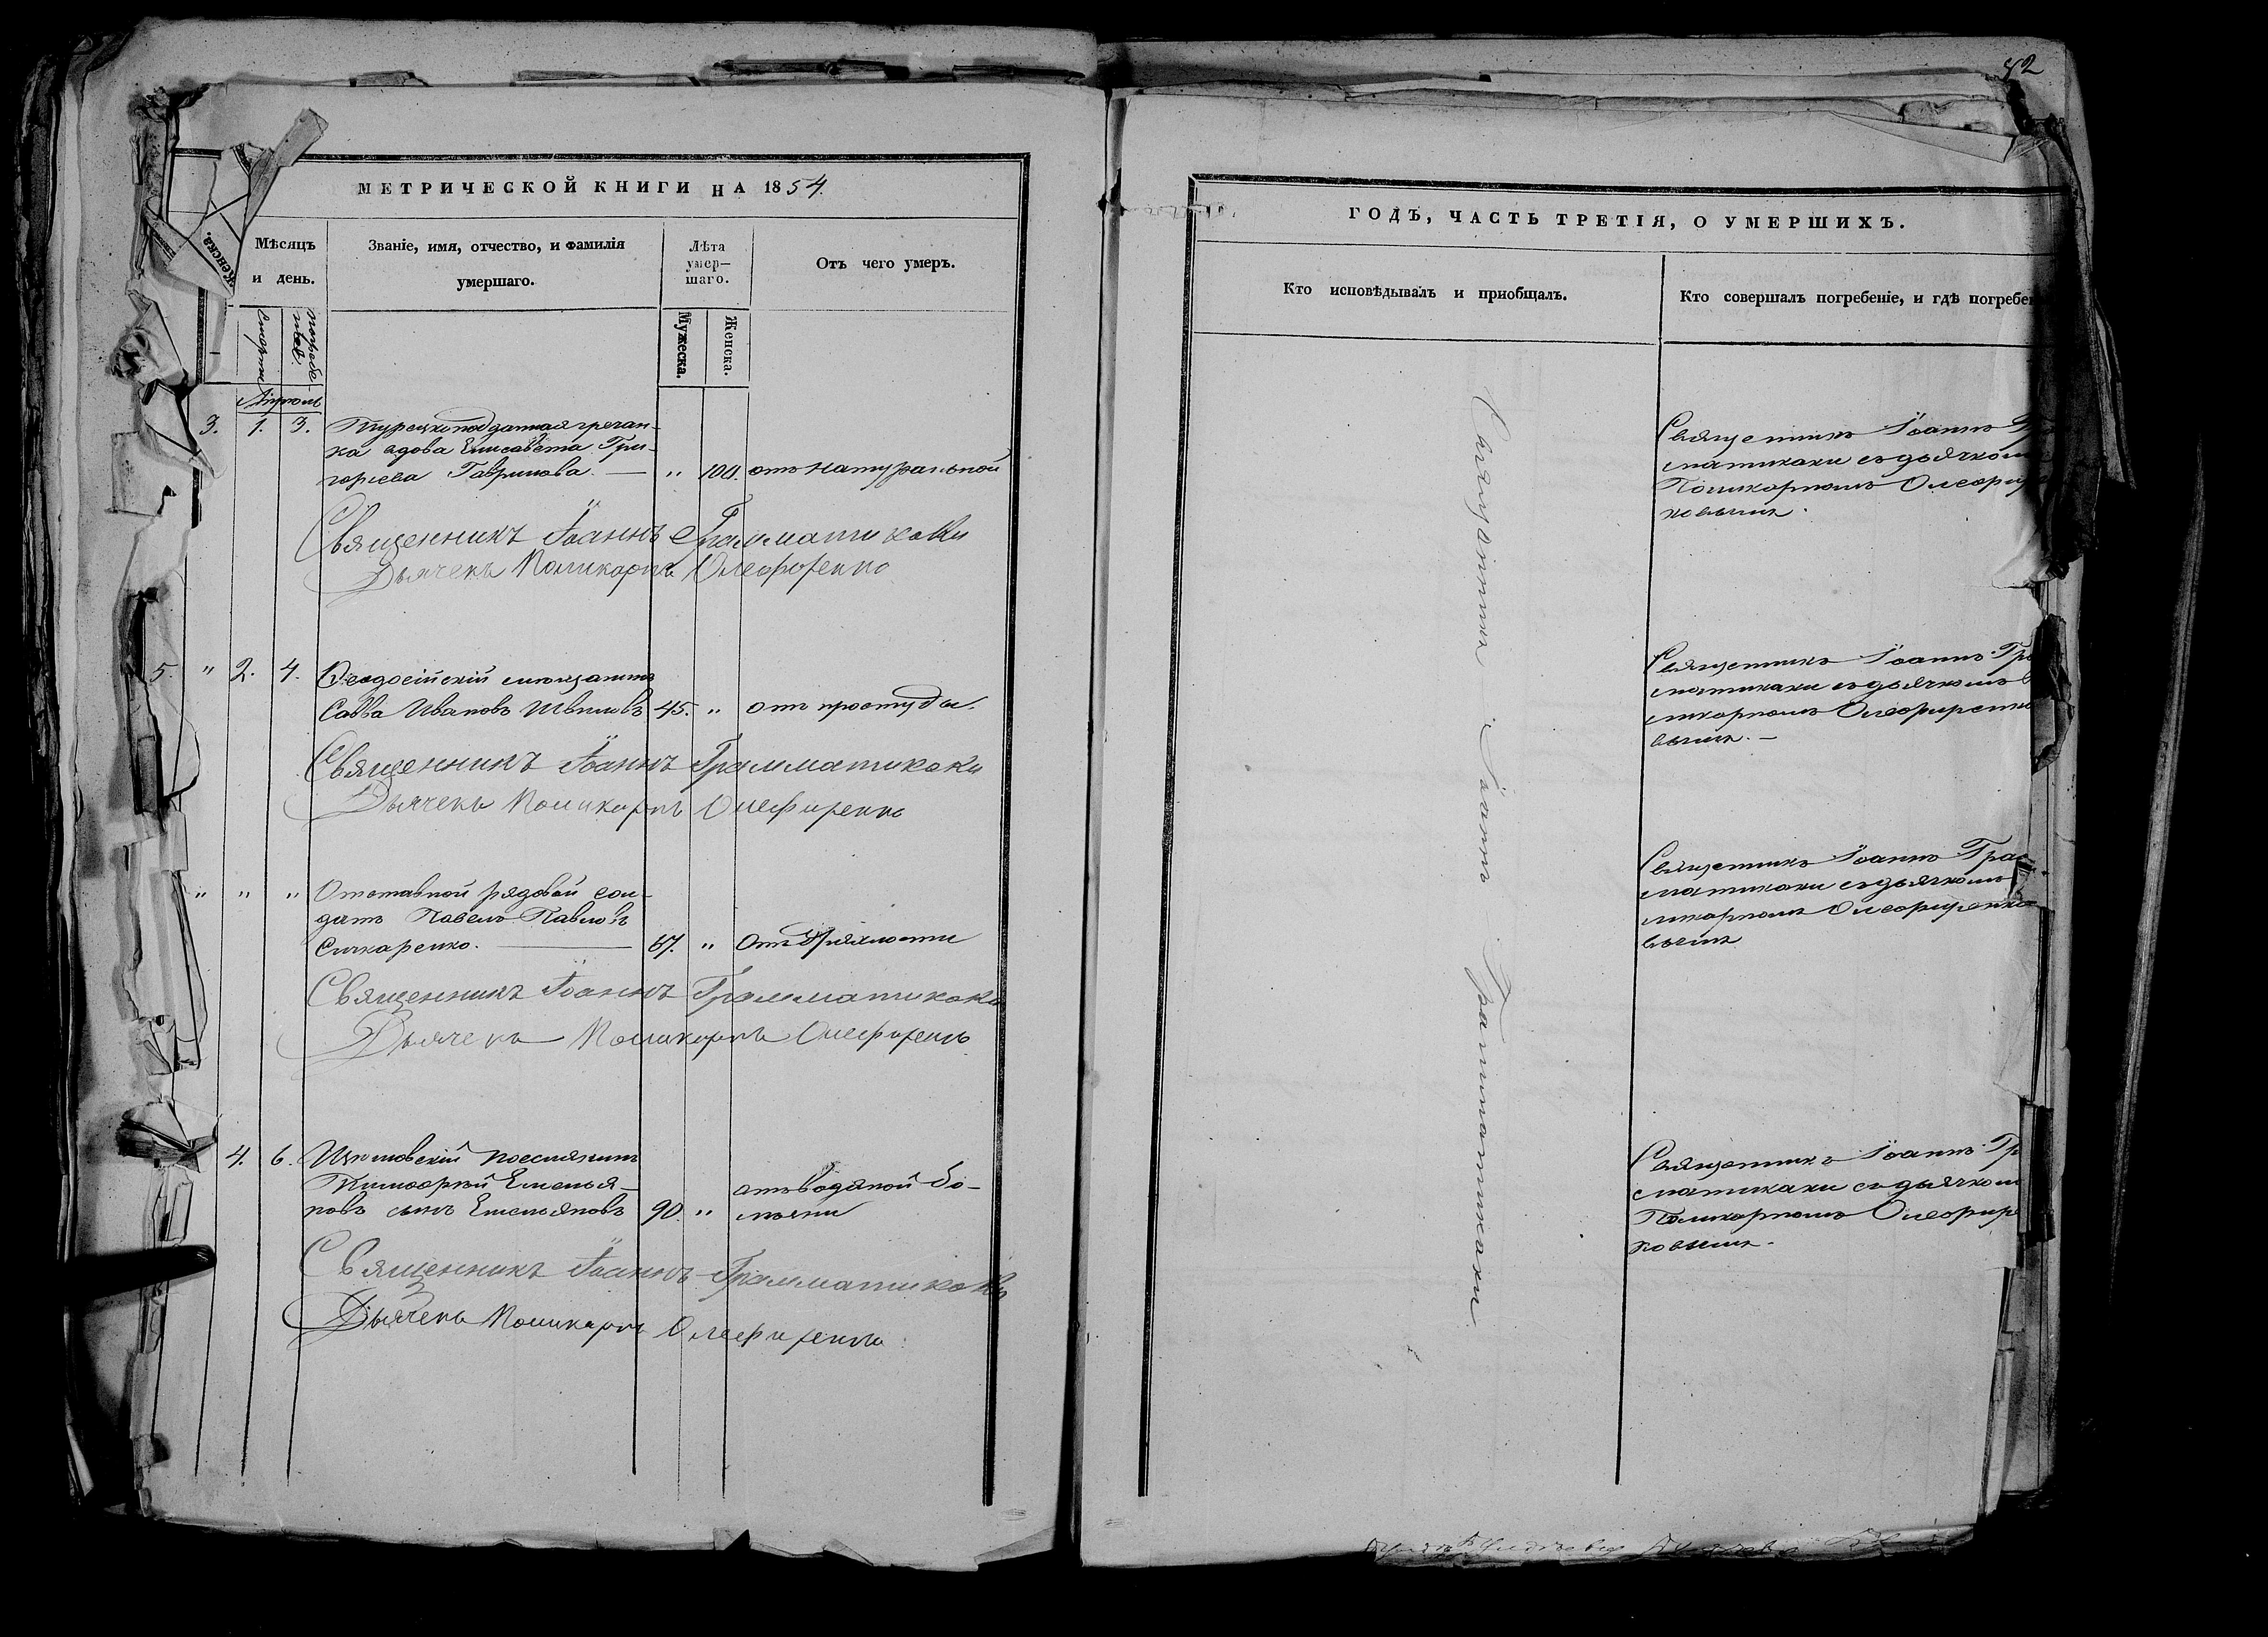 МЕТРИЧЕСКОЙ КНИГИ НА 1854.
Женска.
Мѣсяцъ
и день.
Званіе, имя, отчество, и Фамилія
умершаго.
Лѣта
умер—
шаго.
Отъ чего умеръ.
Смерти
погребе-
нія.
Мужеска.
Женска.
Апрѣль
3. 1. 3. Турецкоподданная гречан-
ка вдова Елисавета Гри-
горьева Гаврилова. — „ 100. отъ натуральной
Священникъ Іоаннъ Грамматикаки
Дьячекъ Поликарпъ Олефиренко
5. „ 2. 4. Ѳеодосійскій мѣщанинъ
Савва Ивановъ 45. „ отъ простуды.
Священникъ Іоаннъ Грамматикаки
Дьячекъ Поликарпъ Олефиренко
„ „ „ Отставной рядовой сол-
датъ Павелъ Павловъ
Сичкаренко. — 67. „ отъ дряхлости
Священникъ Іоаннъ Грамматикаки
Дьячекъ Поликарпъ Олефиренко
4. 6. Изюмовскій поселянинъ
Тимоѳей Емелья-
новъ сынъ Емельяновъ 90. „ отъ водяной бо-
лѣзни
Священникъ Іоаннъ Грамматикаки
Дьячекъ Поликарпъ Олефиренко
42
ГОДЪ, ЧАСТЬ ТРЕТІЯ, О УМЕРШИХЪ.
Кто исповѣдывалъ и пріобщалъ.
Кто совершалъ погребеніе, и гдѣ погребе
Священникъ Іоаннъ Грамматикаки
Священникъ Іоаннъ Гра
матикаки съ дьячком
Поликарпомъ Олефире
ковымъ.
Священникъ Іоаннъ Гра
матикаки съ дьячкомъ
ликарпомъ Олефиренко
вымъ. —
Священникъ Іоаннъ Грам
матикаки съ дьячкомъ
ликарпомъ Олефиренко
вымъ
Священникъ Іоаннъ Гр
матикаки съ дьячком
Поликарпомъ Олефире
ковымъ.